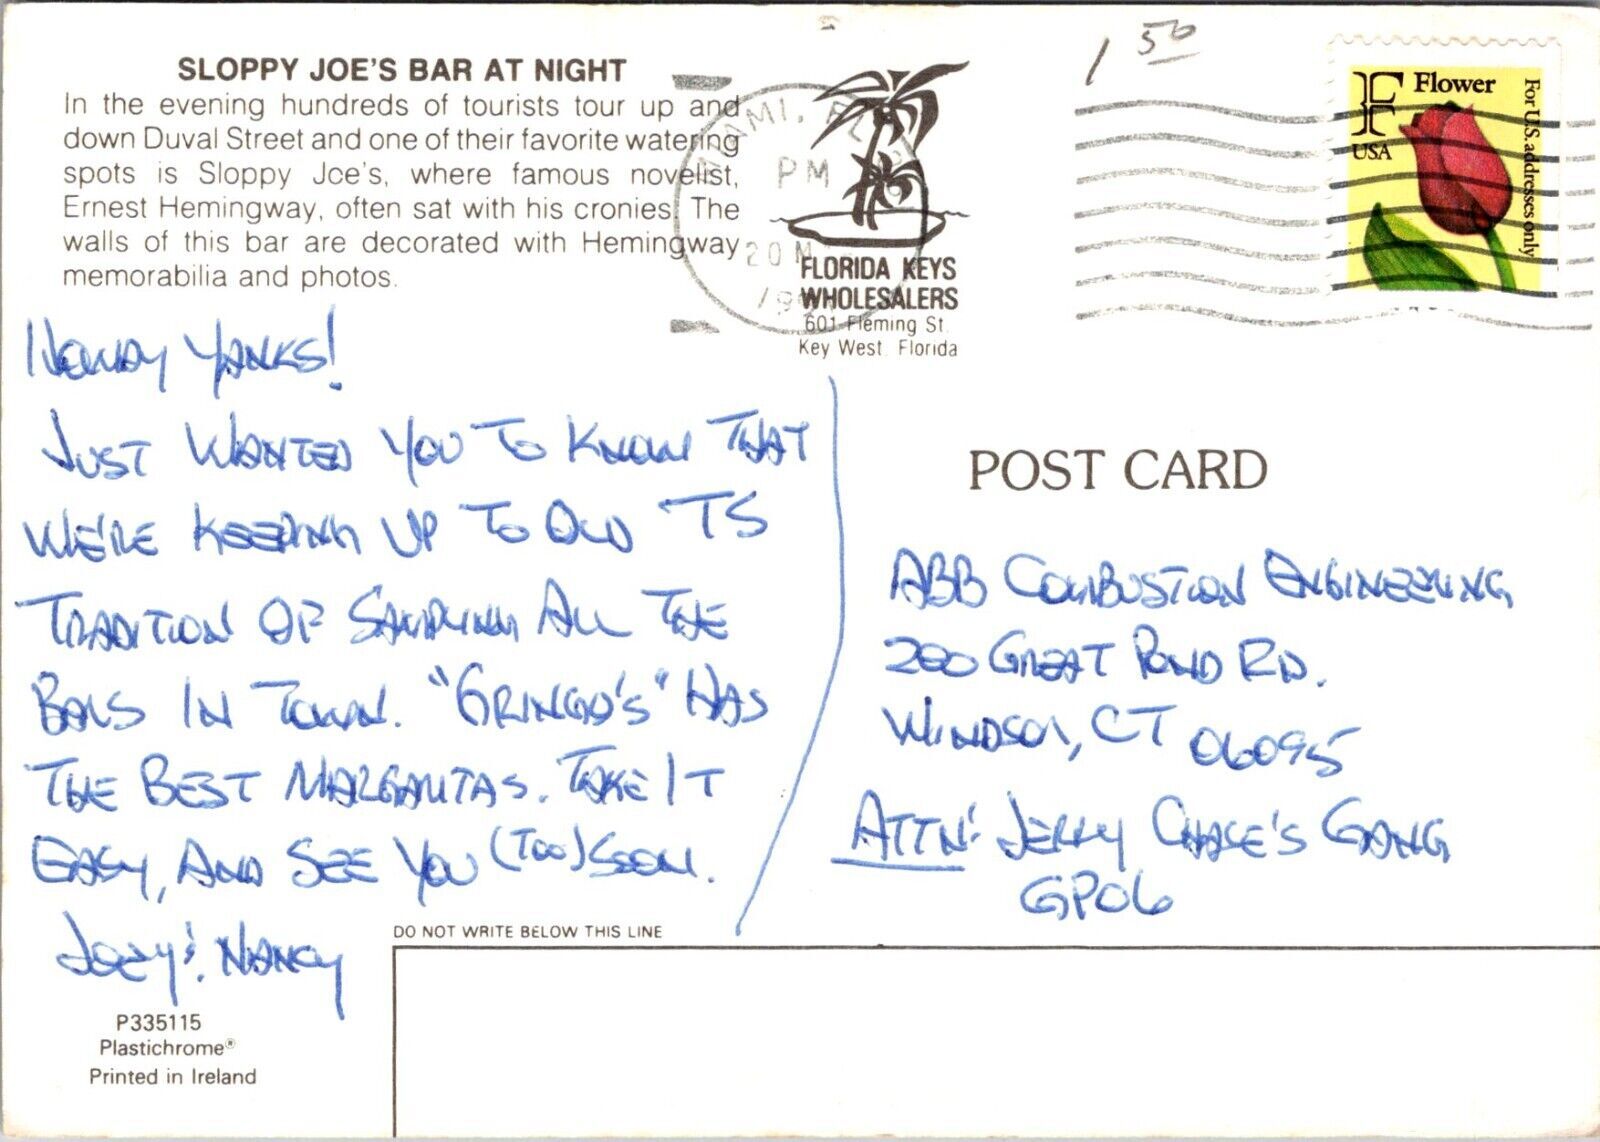 SLOPPY JOE'S BAR AT NIGHT
In the evening hundreds of tourists tour up and
down Duval Street and one of their favorite watering
spots is Sloppy Jce's, where famous novelist,
Ernest Hemingway, often sat with his cronies. The
walls of this bar are decorated with Hemingway
memorabilia and photos.
MIAMI, FL
PM
20 M
19
FLORIDA KEYS
WHOLESALERS
601 Fleming St.
Key West, Florida
1 50
F
Flower
USA
For U.S. addresses only
HOWDY YANKS!
JUST WANTED YOU TO KNOW THAT
WE'RE KEEPING UP TO OLD TS
TRADITION OF SAMPLING ALL THE
BARS IN TOWN. "GRINGO'S" HAS
THE BEST MARGARITAS. TAKE IT
EASY, AND SEE YOU (TOO) SOON.
JOEY & NANCY
POST CARD
ABB COMBUSTION ENGINEERING
200 GREAT POND RD.
WINDSOR, CT 06095
ATTN: JERRY CHASE'S GANG
GP06
DO NOT WRITE BELOW THIS LINE
P335115
Plastichrome®
Printed in Ireland